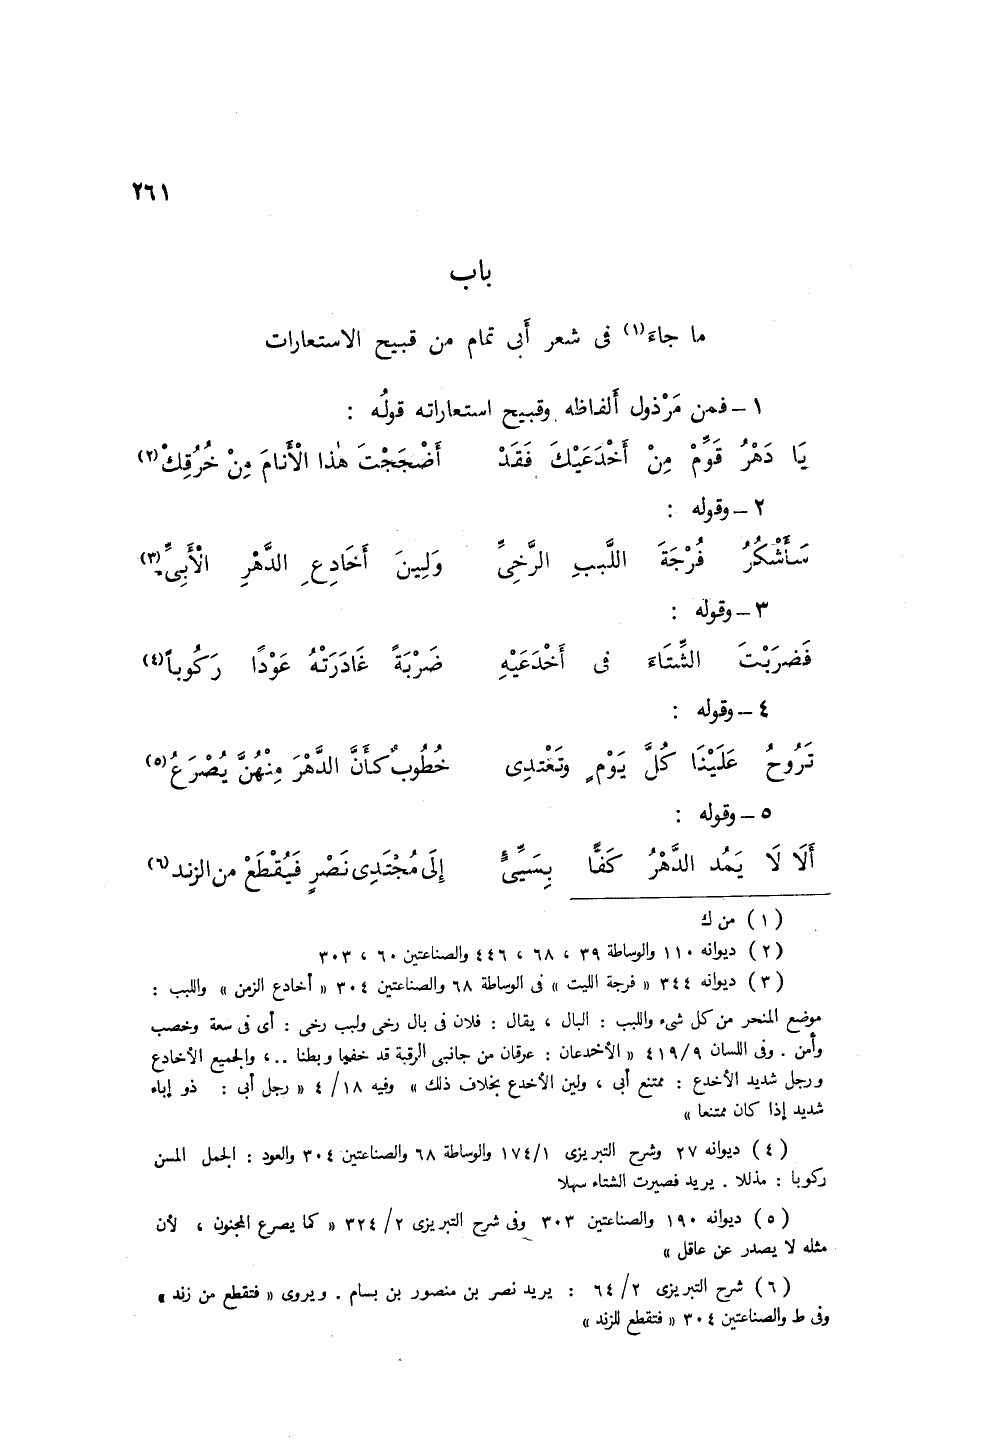 ٢٦١
باب
ما جاءَ(١) فى شعر أَبى تمام من قبيح الاستعارات
١ – فمن مَرْذول أَلفاظه وقبيح استعاراته قولُه :
يَا دَهْرُ قَوِّمْ مِنْ أَخْدَعَيْكَ فَقَدْ أَضْجَجْتَ هٰذا الْأَنامَ مِنْ خُرُقِكْ(٢)
٢ – وقوله :
سَأَشْكُرُ فُرْجَةَ اللَّببِ الرَّخِىِّ وَلِينَ أَخَادِعِ الدَّهْرِ الْأَبِىِّ(٣)
٣ – وقوله :
فَضرَبْتَ الشِّتَاءَ فى أَخْدَعَيْهِ ضَرْبَةً غَادَرَتْهُ عَوْدًا رَكُوباً(٤)
٤ – وقوله :
تَرُوحُ عَلَيْنَا كُلَّ يَوْمٍ وتَغْتدِى خُطُوبٌ كأَنَّ الدَّهْرَ مِنْهُنَّ يُصْرَعُ(٥)
٥ – وقوله :
أَلَا لَا يَمُد الدَّهْرُ كَفًّا بِسَيِّىٍٔ إِلَى مُجْتَدِى نَصْرٍ فَيُقْطَعْ من الزند(٦)
(١) من ك
(٢) ديوانه ١١٠ والوساطة ٣٩ ، ٦٨ ، ٤٤٦ والصناعتين ٦٠ ، ٣٠٣
(٣) ديوانه ٣٤٤ « فرجة الليت » فى الوساطة ٦٨ والصناعتين ٣٠٤ « أخادع الزمن » واللبب :
موضع المنحر من كل شىء واللبب : البال ، يقال : فلان فى بال رخى ولبب رخى : أى فى سعة وخصب
وأمن . وفى اللسان ٤١٩/٩ « الأخدعان : عرقان من جانبى الرقبة قد خفيا وبطنا .. ، والجميع الأخادع
ورجل شديد الأخدع : ممتنع أبى ، ولين الأخدع بخلاف ذلك » وفيه ٤/١٨ « رجل أبى : ذو إباء
شديد إذا كان ممتنعا »
(٤) ديوانه ٢٧ وشرح التبريزى ١٧٤/١ والوساطة ٦٨ والصناعتين ٣٠٤ والعود : الجمل المسن
ركوبا : مذللا . يريد فصيرت الشتاء سهلا
(٥) ديوانه ١٩٠ والصناعتين ٣٠٣ وفى شرح التبريزى ٣٢٤/٢ « كما يصرع المجنون ، لأن
مثله لا يصدر عن عاقل »
(٦) شرح التبريزى ٦٤/٢ : يريد نصر بن منصور بن بسام . ويروى « فتقطع من زند »
وفى ط والصناعتين ٣٠٤ « فتقطع للزند »